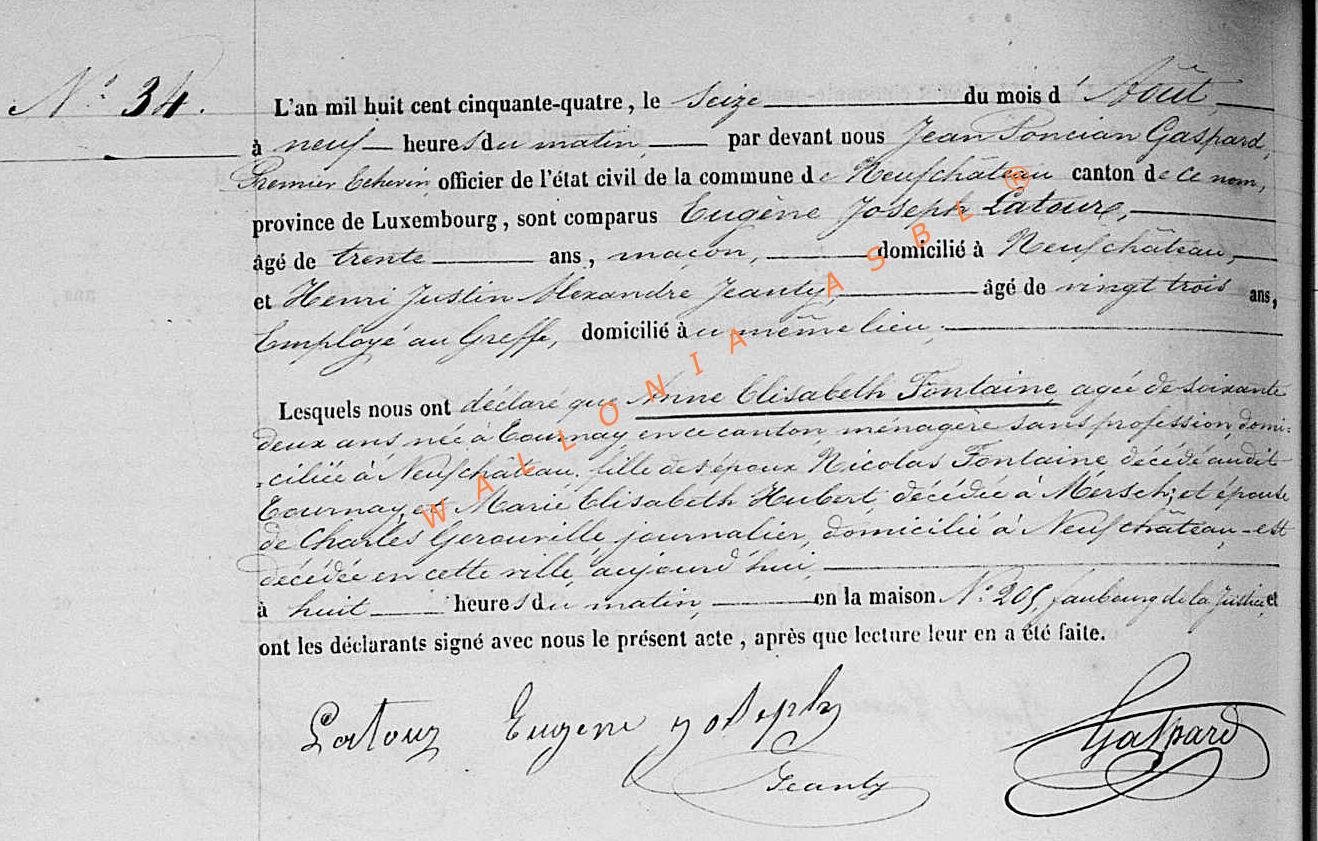 N.° 34.
L'an mil huit cent cinquante-quatre, le Seize du mois d'Août,
à neuf heures du matin, par devant nous Jean Poncian Gaspard,
Premier Echevin officier de l'état civil de la commune de Neufchâteau canton de ce nom,
province de Luxembourg, sont comparus Eugène Joseph Latour,
âgé de trente ans, maçon, domicilié à Neufchâteau,
et Henri Justin Alexandre Jeanty, âgé de vingt trois ans,
Employé au Greffe, domicilié au même lieu,
Lesquels nous ont déclaré que Anne Elisabeth Fontaine, agée de soixante
deux ans née à Tournay en ce canton, ménagère sans profession, domi-
-ciliée à Neufchâteau, fille des époux Nicolas Fontaine, décédé audit
Tournay, et Marie Elisabeth Hubert, décédée à Mersch; et épouse
de Charles Gerouville, journalier, domicilié à Neufchâteau - est
décédée en cette ville, aujourd'hui,
à huit heures du matin, en la maison N.° 205, faubourg de la Justice, et
ont les déclarants signé avec nous le présent acte, après que lecture leur en a été faite.
Latour Eugene joseph
Gaspard
Jeanty
WALLONIA ASBL ®